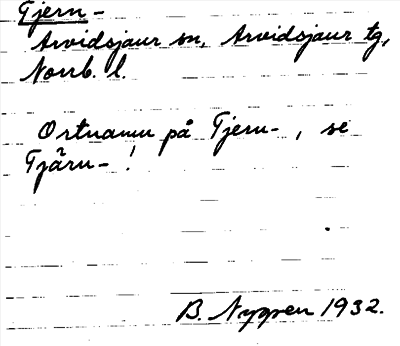 Tjern-
Arvidsjaur sn, Arvidsjaur tg,
Norrb. l.
Ortnamn på Tjern-, se
Tjärn-!
B. Nygren 1932.